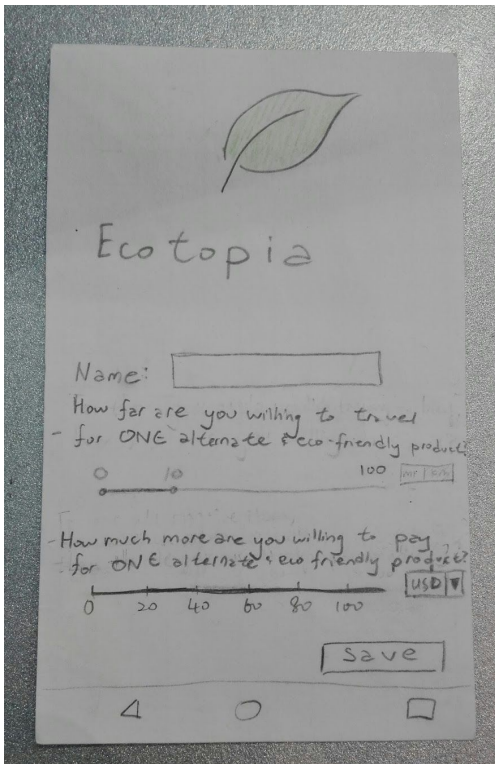 Ecotopia
Name:
How far are you willing to travel
- for ONE alternate & eco-friendly product?
0 10 100
- How much more are you willing to pay
for ONE alternate & eco friendly product?
USD
0 20 40 60 80 100
Save